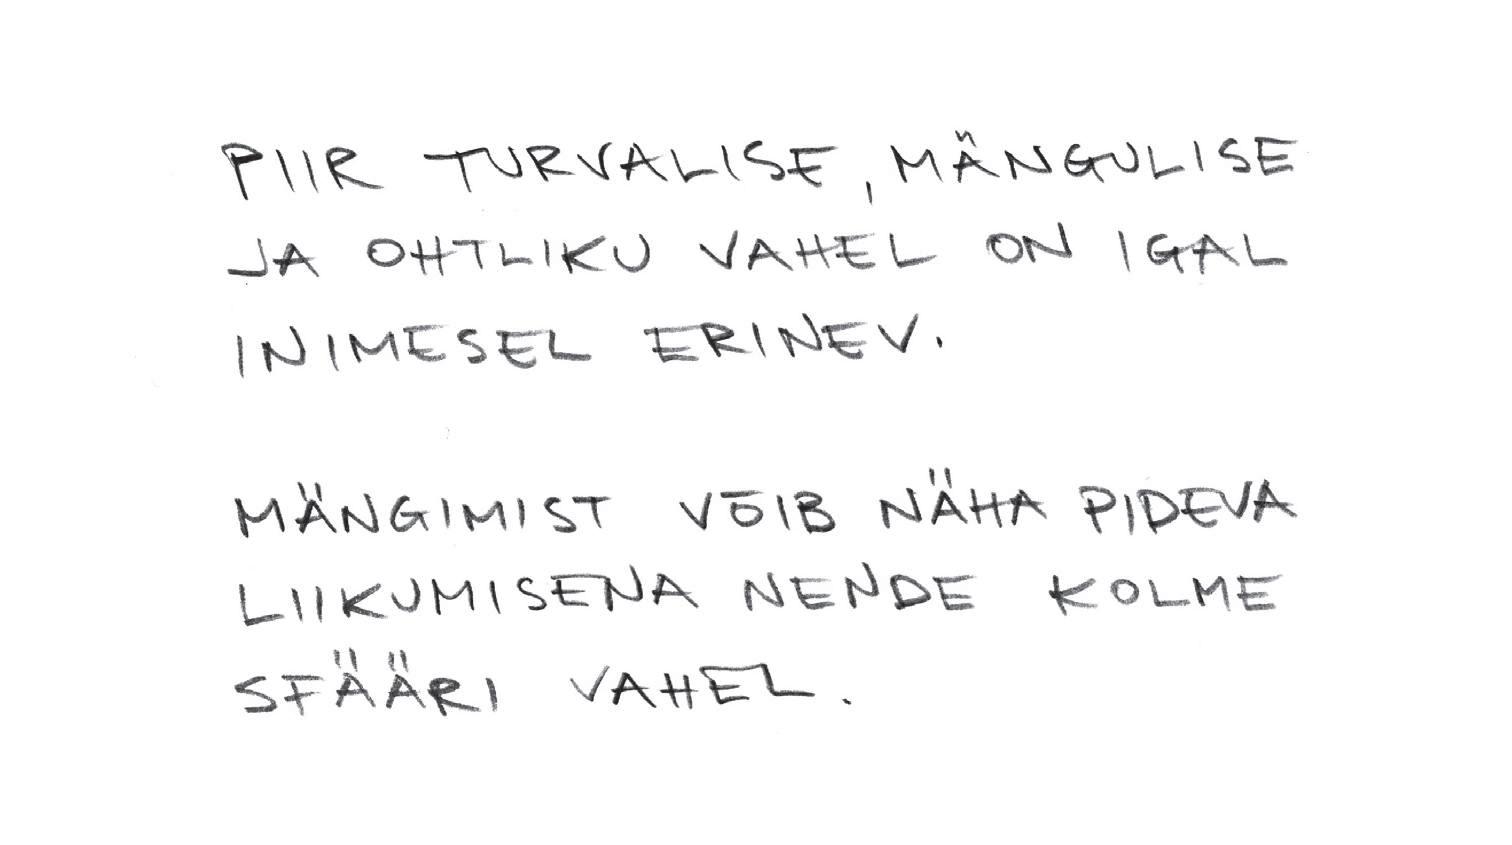 PIIR TURVALISE, MÄNGULISE
JA OHTLIKU VAHEL ON IGAL
INIMESEL ERINEV.
MÄNGIMIST VÕIB NÄHA PIDEVA
LIIKUMISENA NENDE KOLME
SFÄÄRI VAHEL.